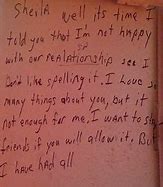 Sheila well its time I
told you that I'm not happy
with our realationship see I
Don't like spelling it. I Love so
many things about you, but it
not enough for me, I want to stay
friends if you will allow it. But
I have had all